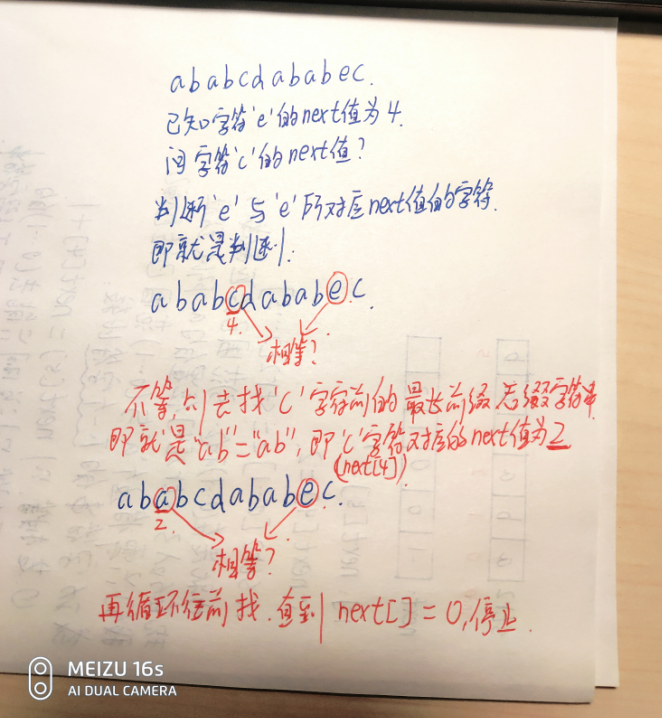 ababcdababec.
已知字符'e'的next值为4.
问字符'c'的next值?
判断'e'与'e'所对应next值的字符.
即就是判断:
ababcdababec.
4.
相等?
不等,则去找'c'字符前的最长前缀后缀字符串
即就是"ab"="ab",即'c'字符对应的next值为2
(next[4])
ababcdababec.
2.
相等?
再循环往前找.直到next[]=0,停止.
MEIZU 16s
AI DUAL CAMERA